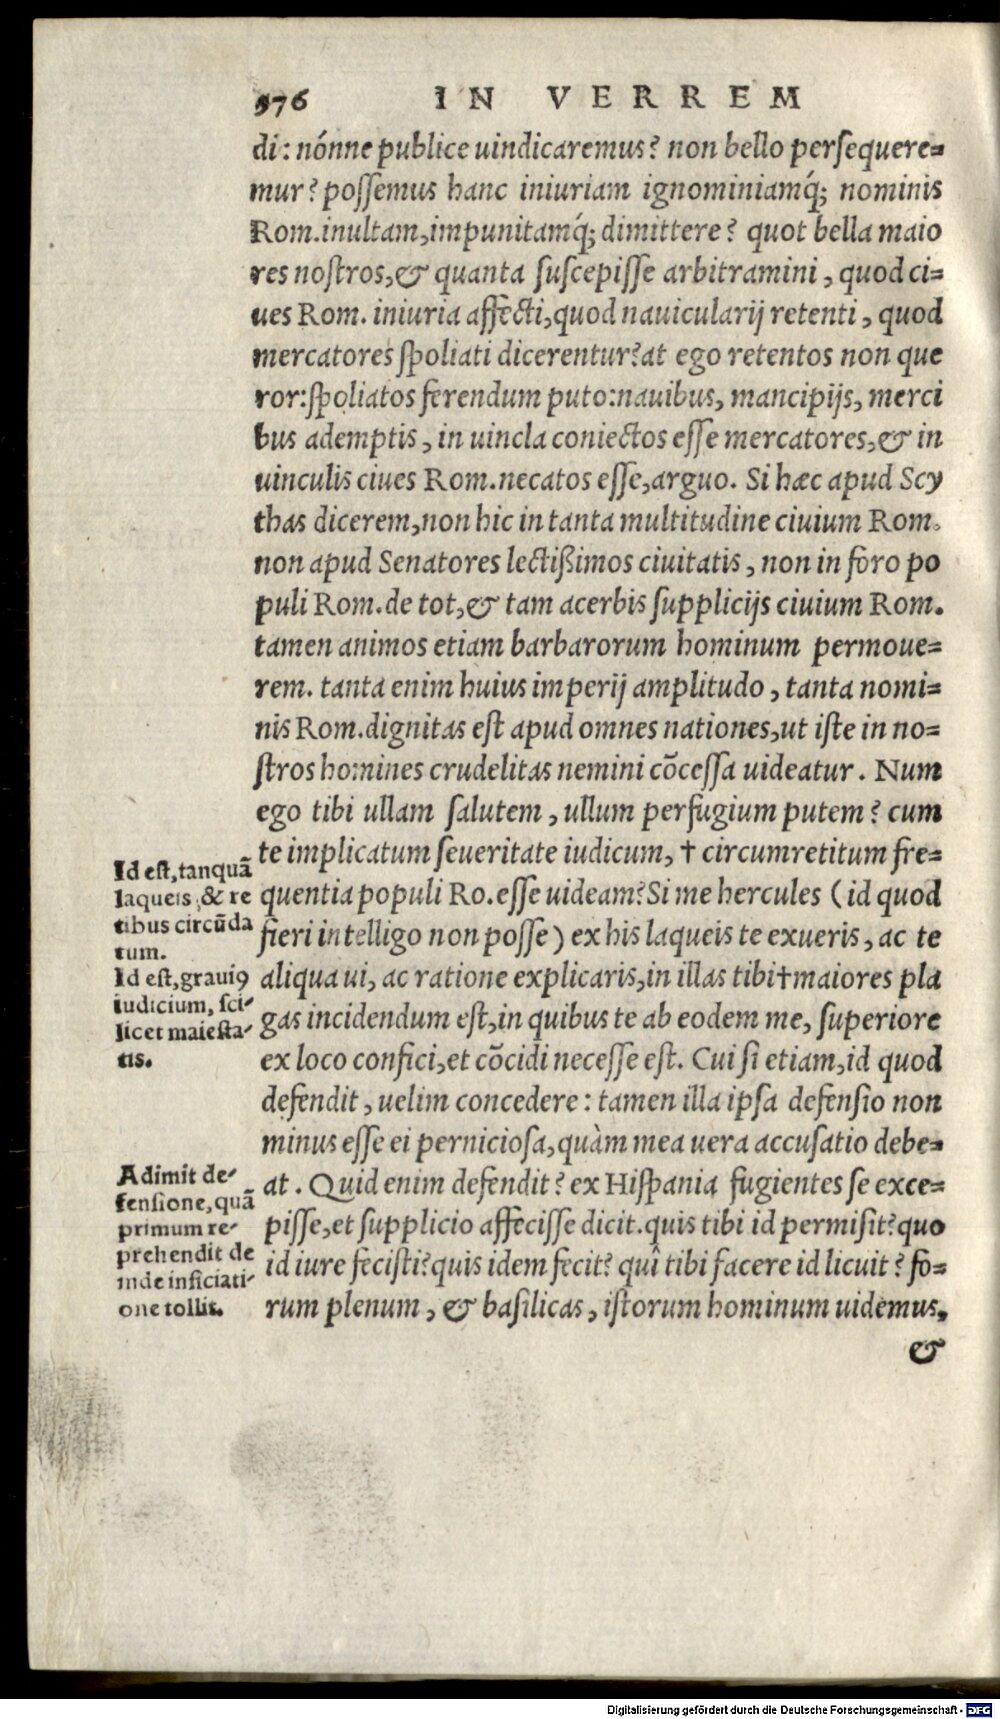 576 IN VERREM
di: nónne publice uindicaremus? non bello persequere=
mur? possemus hanc iniuriam ignominiamq́; nominis
Rom.inultam,impunitamq́; dimittere? quot bella maio
res nostros,& quanta suscepisse arbitramini, quod ci=
ues Rom. iniuria affecti,quod nauicularij retenti, quod
mercatores spoliati dicerentur?at ego retentos non que
ror:spoliatos ferendum puto:nauibus, mancipijs, merci
bus ademptis, in uincla coniectos esse mercatores,& in
uinculis ciues Rom.necatos esse,arguo. Si hæc apud Scy
thas dicerem,non hic in tanta multitudine ciuium Rom.
non apud Senatores lectißimos ciuitatis, non in foro po
puli Rom.de tot,& tam acerbis supplicijs ciuium Rom.
tamen animos etiam barbarorum hominum permoue=
rem. tanta enim huius imperij amplitudo, tanta nomi=
nis Rom.dignitas est apud omnes nationes,ut iste in no=
stros homines crudelitas nemini cōcessa uideatur. Num
ego tibi ullam salutem, ullum perfugium putem? cum
te implicatum seueritate iudicum, † circumretitum fre=
quentia populi Ro.esse uideam?Si me hercules (id quod
fieri intelligo non posse) ex his laqueis te exueris, ac te
aliqua ui, ac ratione explicaris,in illas tibi†maiores pla
gas incidendum est,in quibus te ab eodem me, superiore
ex loco confici,et cōcidi necesse est. Cui si etiam,id quod
defendit, uelim concedere: tamen illa ipsa defensio non
minus esse ei perniciosa,quàm mea uera accusatio debe=
at. Quid enim defendit? ex Hispania fugientes se exce=
pisse,et supplicio affecisse dicit.quis tibi id permisit?quo
id iure fecisti?quis idem fecit? quî tibi facere id licuit? fo=
rum plenum, & basilicas, istorum hominum uidemus,
&
Id est,tanquã
laqueis,& re
tibus circũda
tum.
Id est,grauiꝰ
iudicium, sci-
licet maiesta-
tis.
Adimit de-
fensione,quã
primum re-
prehendit de
inde inficiati-
one tollit.
Digitalisierung gefördert durch die Deutsche Forschungsgemeinschaft - DFG